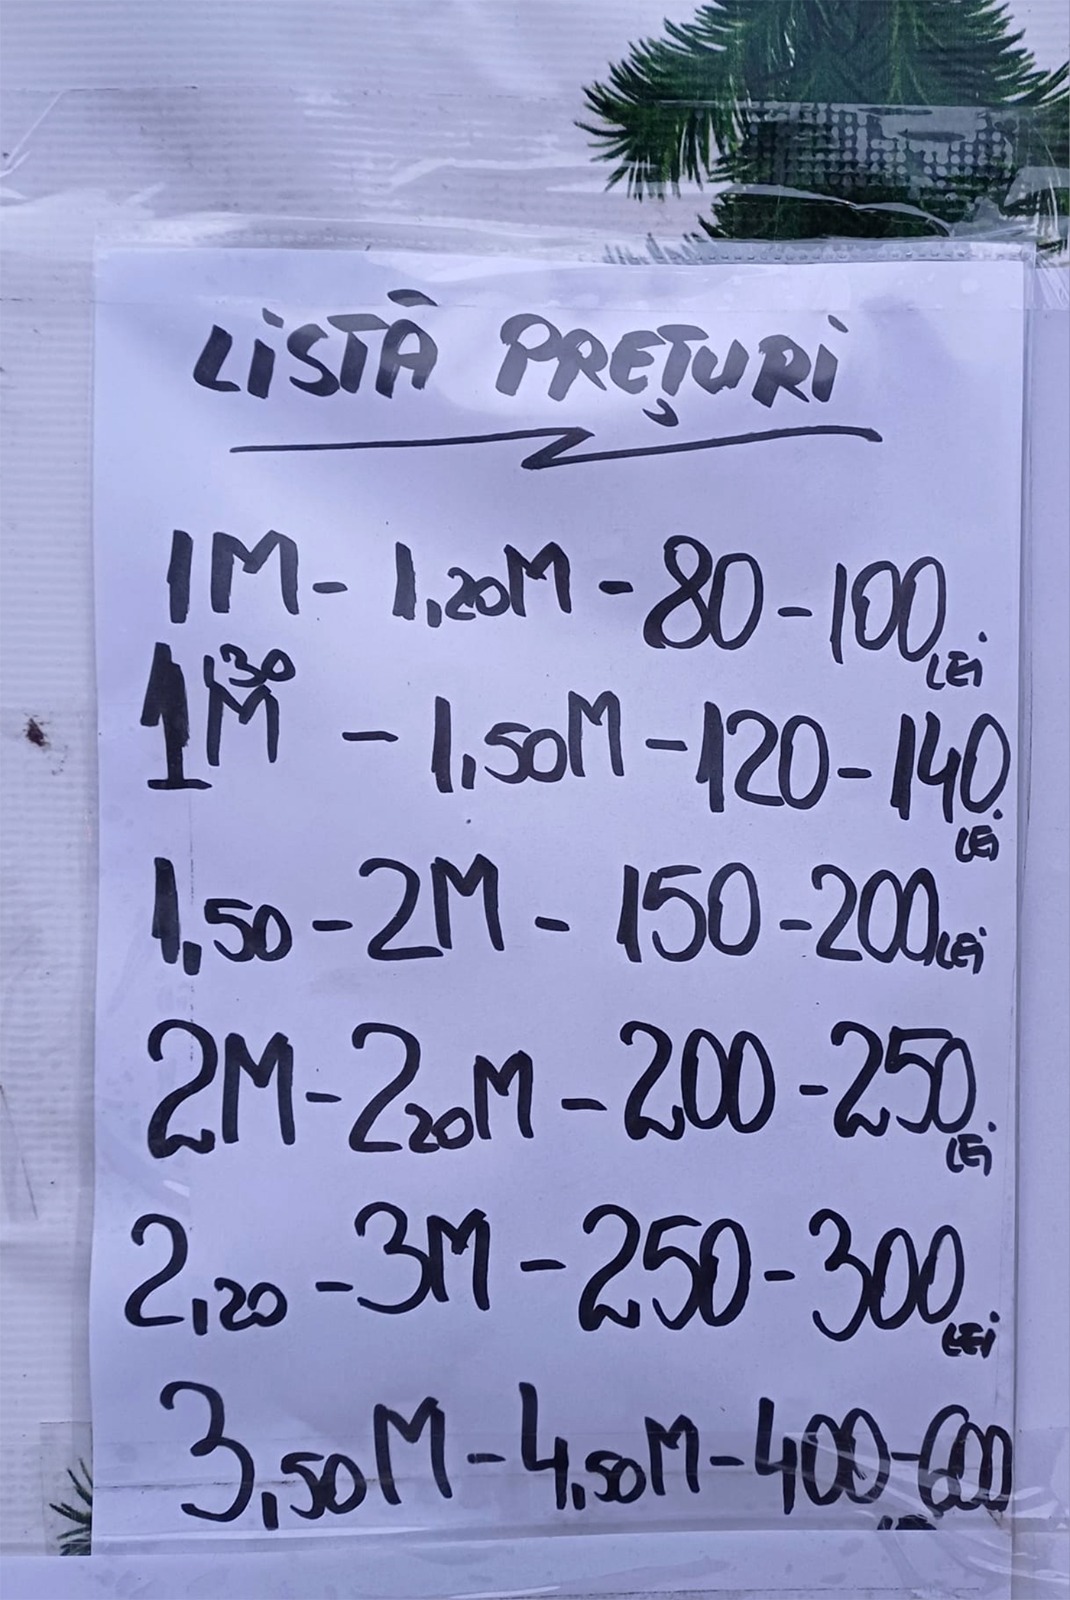 LISTĂ PREȚURI
1M - 1,20M - 80 - 100 LEI
1,30M - 1,50M - 120 - 140 LEI
1,50 - 2M - 150 - 200 LEI
2M - 2,20M - 200 - 250 LEI
2,20 - 3M - 250 - 300 LEI
3,50M - 4,50M - 400 - 600